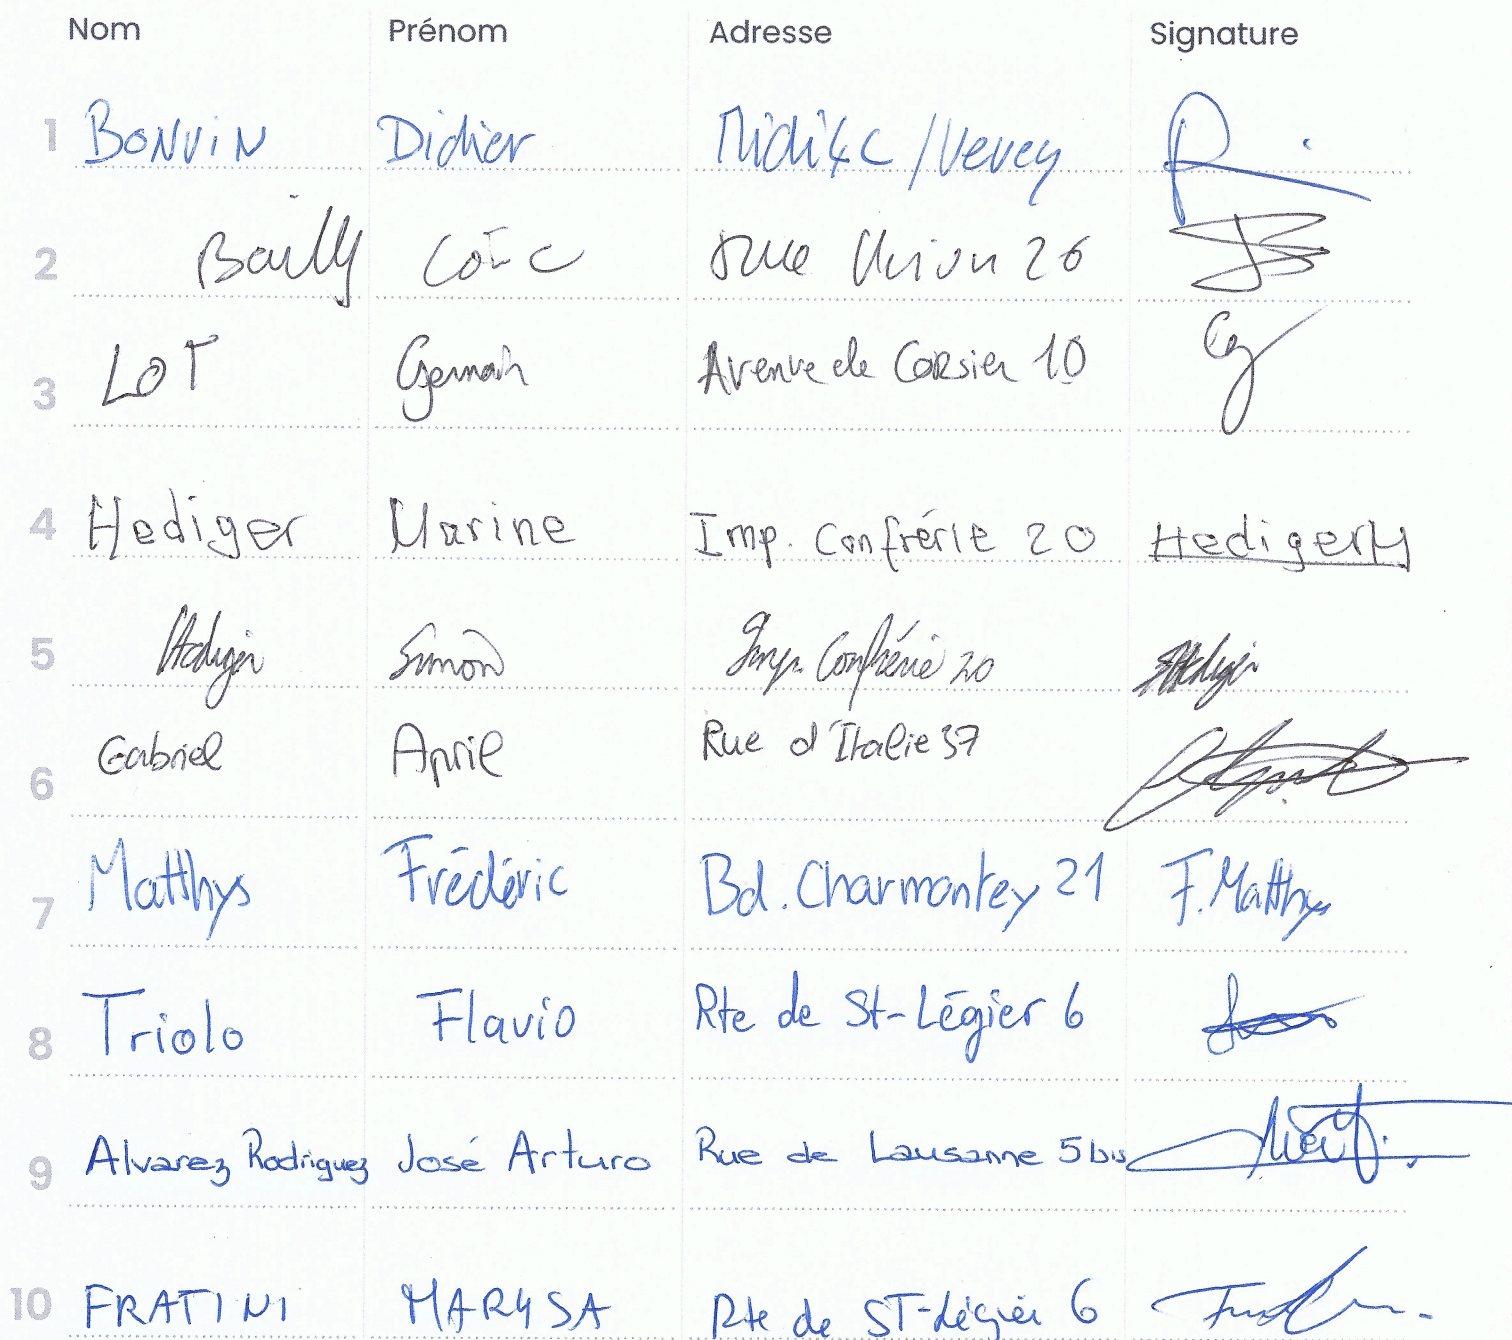 Nom Prénom Adresse Signature
1 BONVIN Didier Midi 4c / Vevey
2 Bailly Loïc rue Union 26
3 LOT Germain Avenue de Corsier 10
4 Hediger Marine Imp. Confrérie 20 Hediger M
5 Hediger Simon Imp. Confrérie 20 Hediger
6 Gabriel April Rue d'Italie 37
7 Matthys Frédéric Bd. Charmontey 21 F. Matthys
8 Triolo Flavio Rte de St-Légier 6
9 Alvarez Rodriguez José Arturo Rue de Lausanne 5 bis
10 FRATINI MARYSA Rte de ST-Légier 6